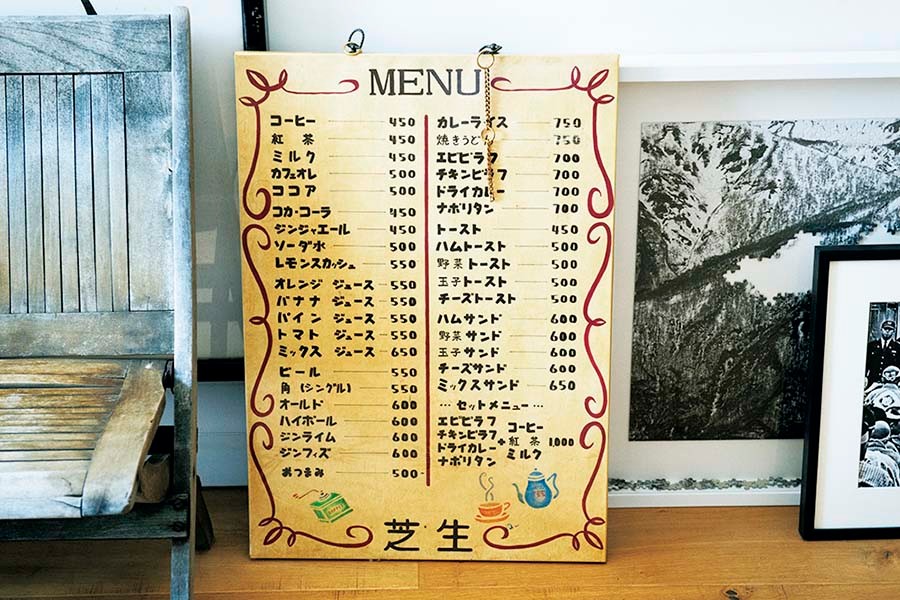 MENU
コーヒー 450
紅茶 450
ミルク 450
カフェオレ 500
ココア 500
コカ・コーラ 450
ジンジャエール 450
ソーダ水 500
レモンスカッシュ 550
オレンジジュース 550
バナナジュース 550
パインジュース 550
トマトジュース 550
ミックスジュース 650
ビール 550
角(シングル) 550
オールド 600
ハイボール 600
ジンライム 600
ジンフィズ 600
おつまみ 500-
カレーライス 750
焼きうどん 750
エビピラフ 700
チキンピラフ 700
ドライカレー 700
ナポリタン 700
トースト 450
ハムトースト 500
野菜トースト 500
玉子トースト 500
チーズトースト 500
ハムサンド 600
野菜サンド 600
玉子サンド 600
チーズサンド 600
ミックスサンド 650
…セットメニュー…
エビピラフ
チキンピラフ
ドライカレー
ナポリタン
+
コーヒー
紅茶
ミルク
1,000
芝生